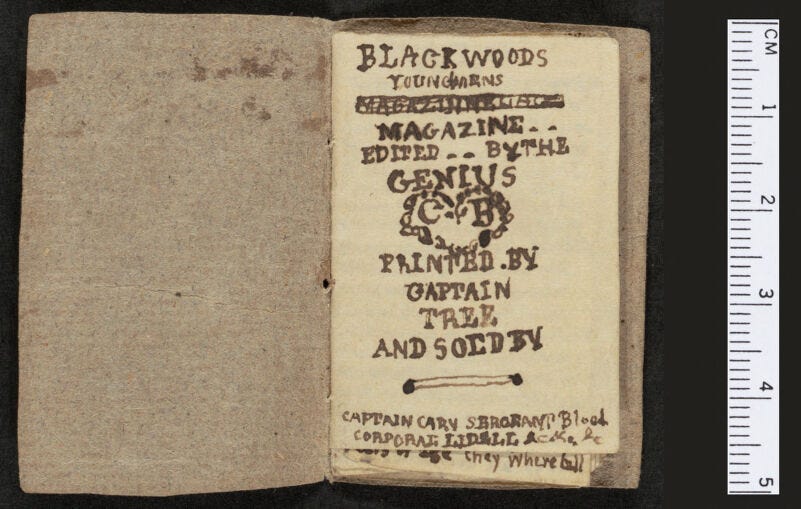 BLACKWOODS
YOUNG
MAGAZINE - -
EDITED - - BY THE
GENIUS
C B
PRINTED . BY
CAPTAIN
TREE
AND SOLD BY
CAPTAIN CARY SERGEANT Blood
CORPORAL LIDELL &c &c &c
of age they Where
CM
1
2
3
4
5